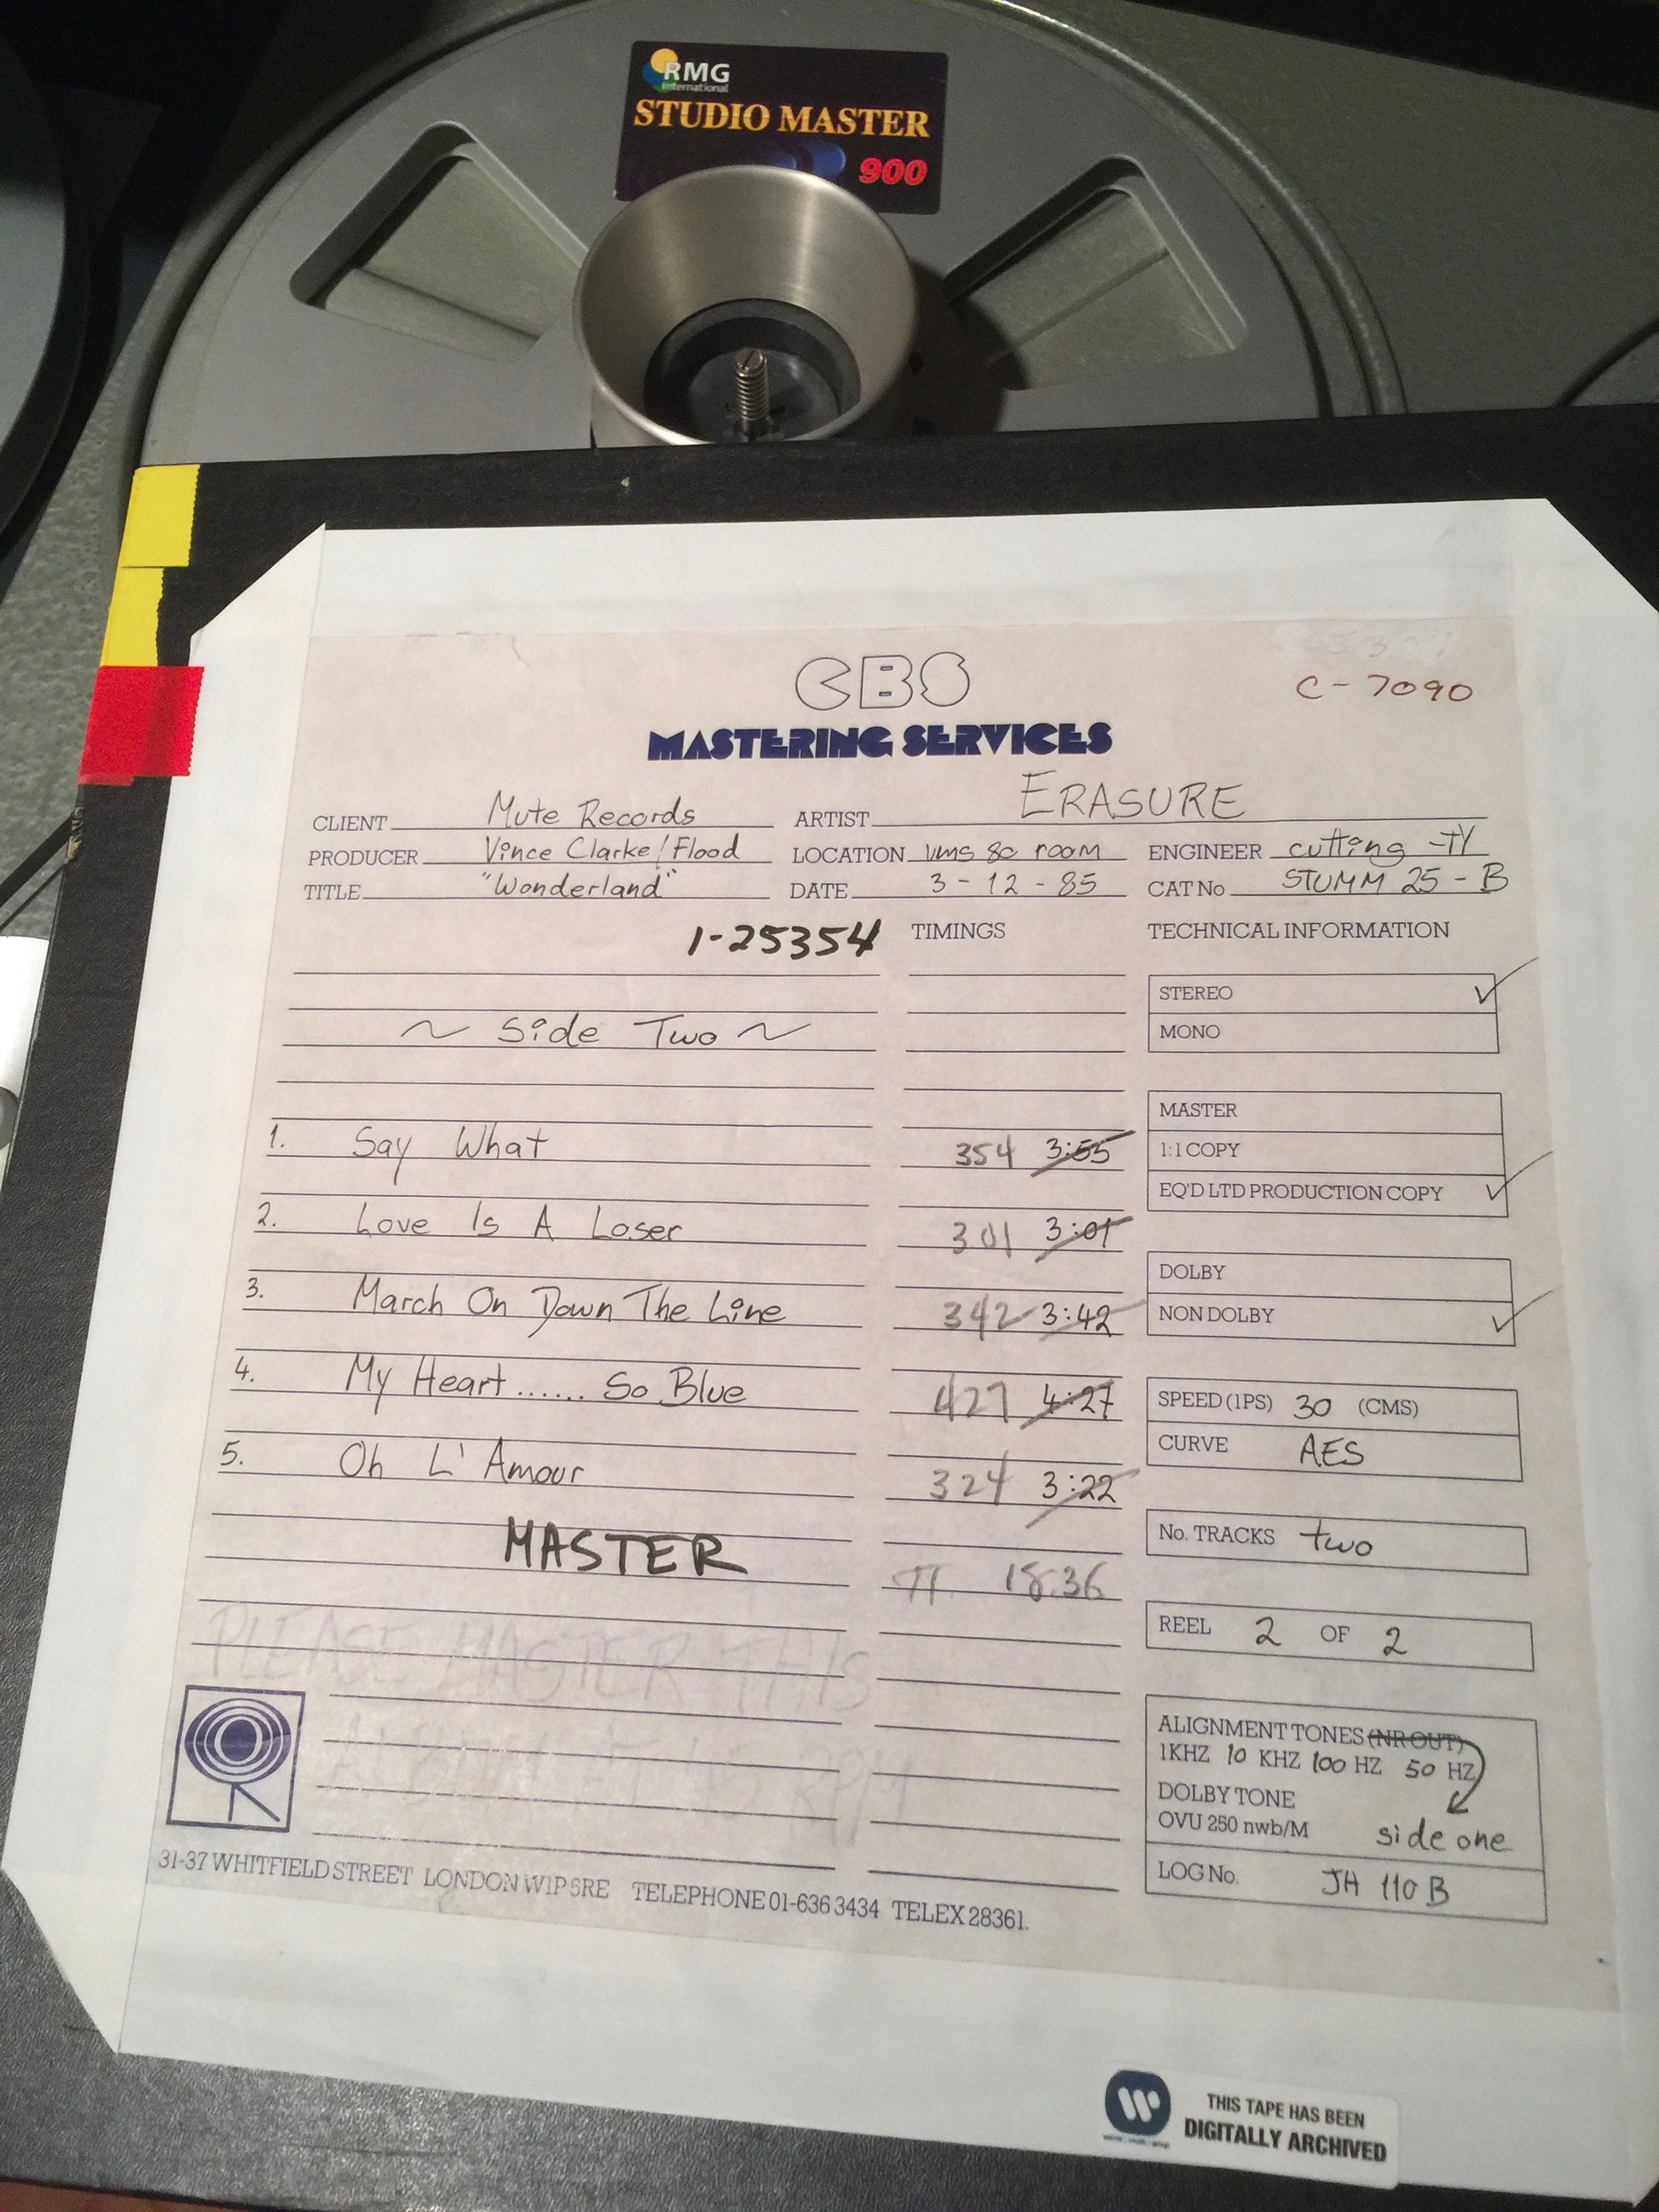 RMG
International
STUDIO MASTER
900
C-7090
CBS
MASTERING SERVICES
CLIENT Mute Records ARTIST ERASURE
PRODUCER Vince Clarke/Flood LOCATION VMS 80 room ENGINEER cutting -TY
TITLE "Wonderland" DATE 3-12-85 CAT No STUMM 25-B
1-25354 TIMINGS TECHNICAL INFORMATION
STEREO ✓
~ Side Two ~
MONO
MASTER
1. Say What 354 3:55
1:1 COPY
EQ'D LTD PRODUCTION COPY ✓
2. Love Is A Loser 301 3:01
DOLBY
3. March On Down The Line 342 3:42
NON DOLBY ✓
4. My Heart...... So Blue 427 4:27
SPEED (IPS) 30 (CMS)
CURVE AES
5. Oh L'Amour 324 3:22
MASTER
No. TRACKS two
TT 18.36
REEL 2 OF 2
PLEASE MASTER THIS
ALBUM AT 45 RPM
ALIGNMENT TONES (NR OUT)
1KHZ 10 KHZ 100 HZ 50 HZ
DOLBY TONE
OVU 250 nwb/M side one
LOG No. JH 110 B
31-37 WHITFIELD STREET LONDON W1P 5RE TELEPHONE 01-636 3434 TELEX 28361.
THIS TAPE HAS BEEN
DIGITALLY ARCHIVED